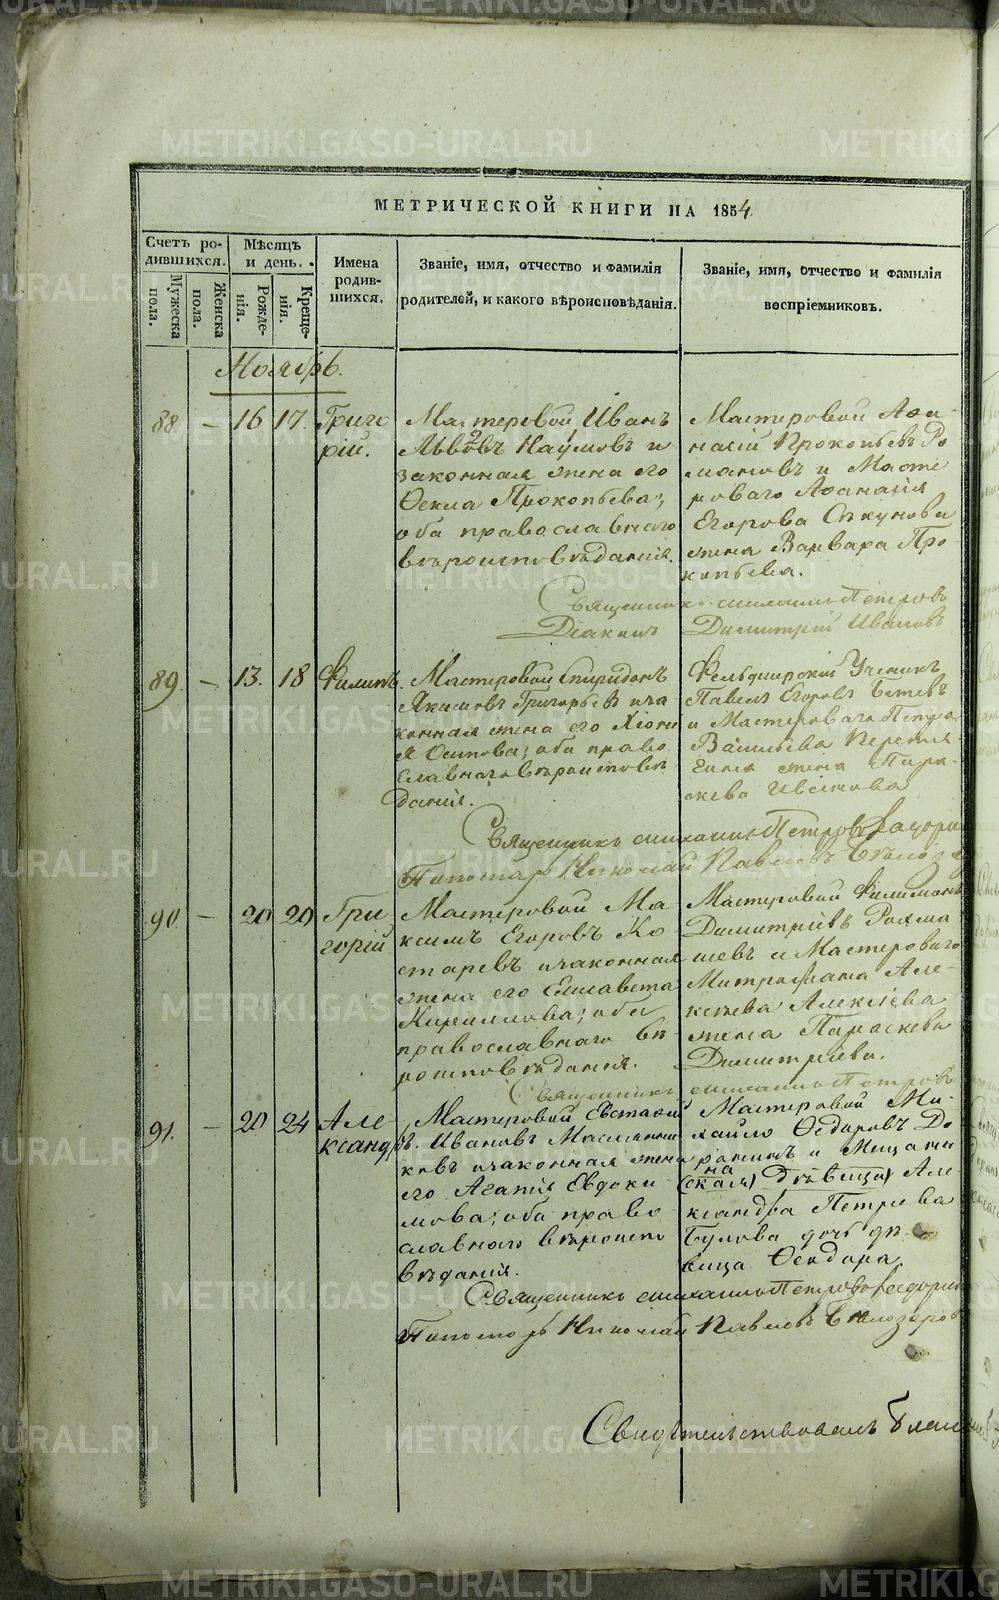 МЕТРИЧЕСКОЙ КНИГИ НА 1854
Счетъ родившихся.
Мужеска пола.
Женска пола.
Мѣсяцъ и день.
Рожденія.
Крещенія.
Имена родившихся.
Званіе, имя, отчество и фамилія
родителей, и какого вѣроисповѣданія.
Званіе, имя, отчество и фамилія
воспріемниковъ.
Ноябрь.
88 – 16 17. Григо
рій.
Мастеровой Иванъ
Львовъ Наумовъ и
законная жена его
Ѳекла Прокопьева;
оба православнаго
вѣроисповѣданія.
Мастеровой Аѳа-
насій Прокопьевъ Ро
мановъ и Масте
роваго Аѳанасія
Егорова Секунова
жена Варвара Про-
копьева.
Священникъ Петровъ
Діаконъ Димитрій Ивановъ
89 – 13. 18 Филипъ.
Мастеровой Спиридонъ
Якимовъ Григорьевъ и за
конная жена его Хіони
я Осипова; оба право
славнаго вѣроисповѣ
данія.
Фельдшерскій Ученикъ
Павелъ Егоровъ
и Мастероваго Петра
Васильева
жена Пара-
скева
Священникъ Петровъ
Пономарь Николай Павловъ
90 – 20 20 Гри
горій
Мастеровой Ма
ксимъ Егоровъ Ко
старевъ и законная
жена его Елисавета
Кириллова; оба
православнаго вѣ
роисповѣданія.
Мастеровой Филимонъ
Димитріевъ Рохма
шевъ и Мастероваго
Митрофана Але-
ксѣева Алексѣева
жена Параскева
Димитріева.
Священникъ Петровъ
91. – 20 24 Але
ксандръ.
Мастеровой Евстафій
Ивановъ Маслени
ковъ и законная жена
его Агапія Евдоки
мова; оба право
славнаго вѣроиспо
вѣданія.
Мастеровой Ми-
хайло Ѳедоровъ До
ронинъ и Мещани
на
(ская) дѣвица) Але
ксандра Петрова
Булова дочь дѣ-
вица Ѳеодора.
Священникъ Петровъ
Пономарь Николай Павловъ Бѣлозеровъ
Свидѣтельствовалъ
METRIKI.GASO-URAL.RU